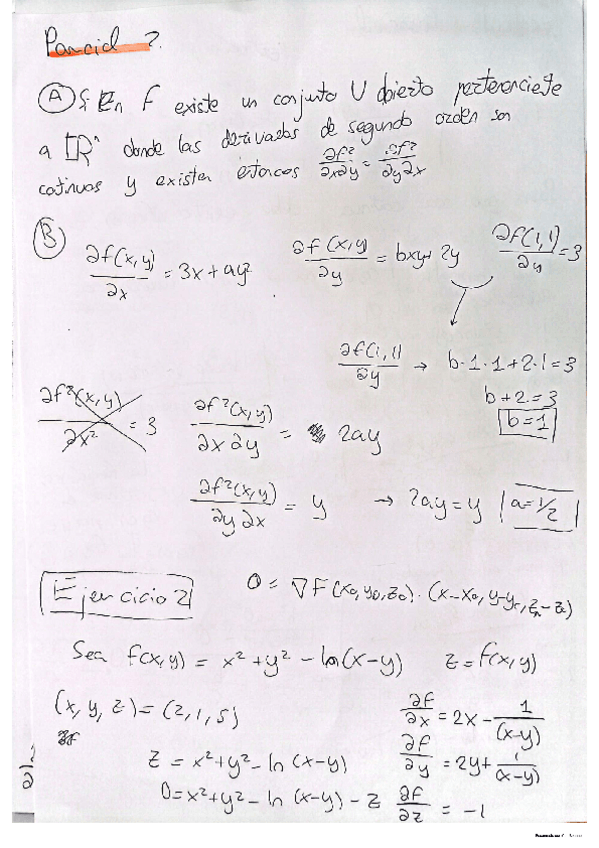 Parcial 2.
(A) Si En F existe un conjunto U abierto perteneciente
a ℝⁿ donde las derivadas de segundo orden son
continuas y existen entonces ∂f²/∂x∂y = ∂f²/∂y∂x
(B)
∂f(x,y)/∂x = 3x + ay² ∂f(x,y)/∂y = bxy + 2y ∂f(1,1)/∂y = 3
∂f(1,1)/∂y → b·1·1 + 2·1 = 3
b + 2 = 3
b = 1
∂f²(x,y)/∂x² = 3 ∂f²(x,y)/∂x∂y = 2ay
∂f²(x,y)/∂y∂x = y → 2ay = y | a = 1/2 |
Ejercicio 2 0 = ∇F(x₀,y₀,z₀)·(x-x₀, y-y₀, z-z₀)
Sea f(x,y) = x² + y² - ln(x-y) z = f(x,y)
(x,y,z) = (2,1,5) ∂f/∂x = 2x - 1/(x-y)
z = x² + y² - ln(x-y) ∂f/∂y = 2y + 1/(x-y)
0 = x² + y² - ln(x-y) - z ∂f/∂z = -1